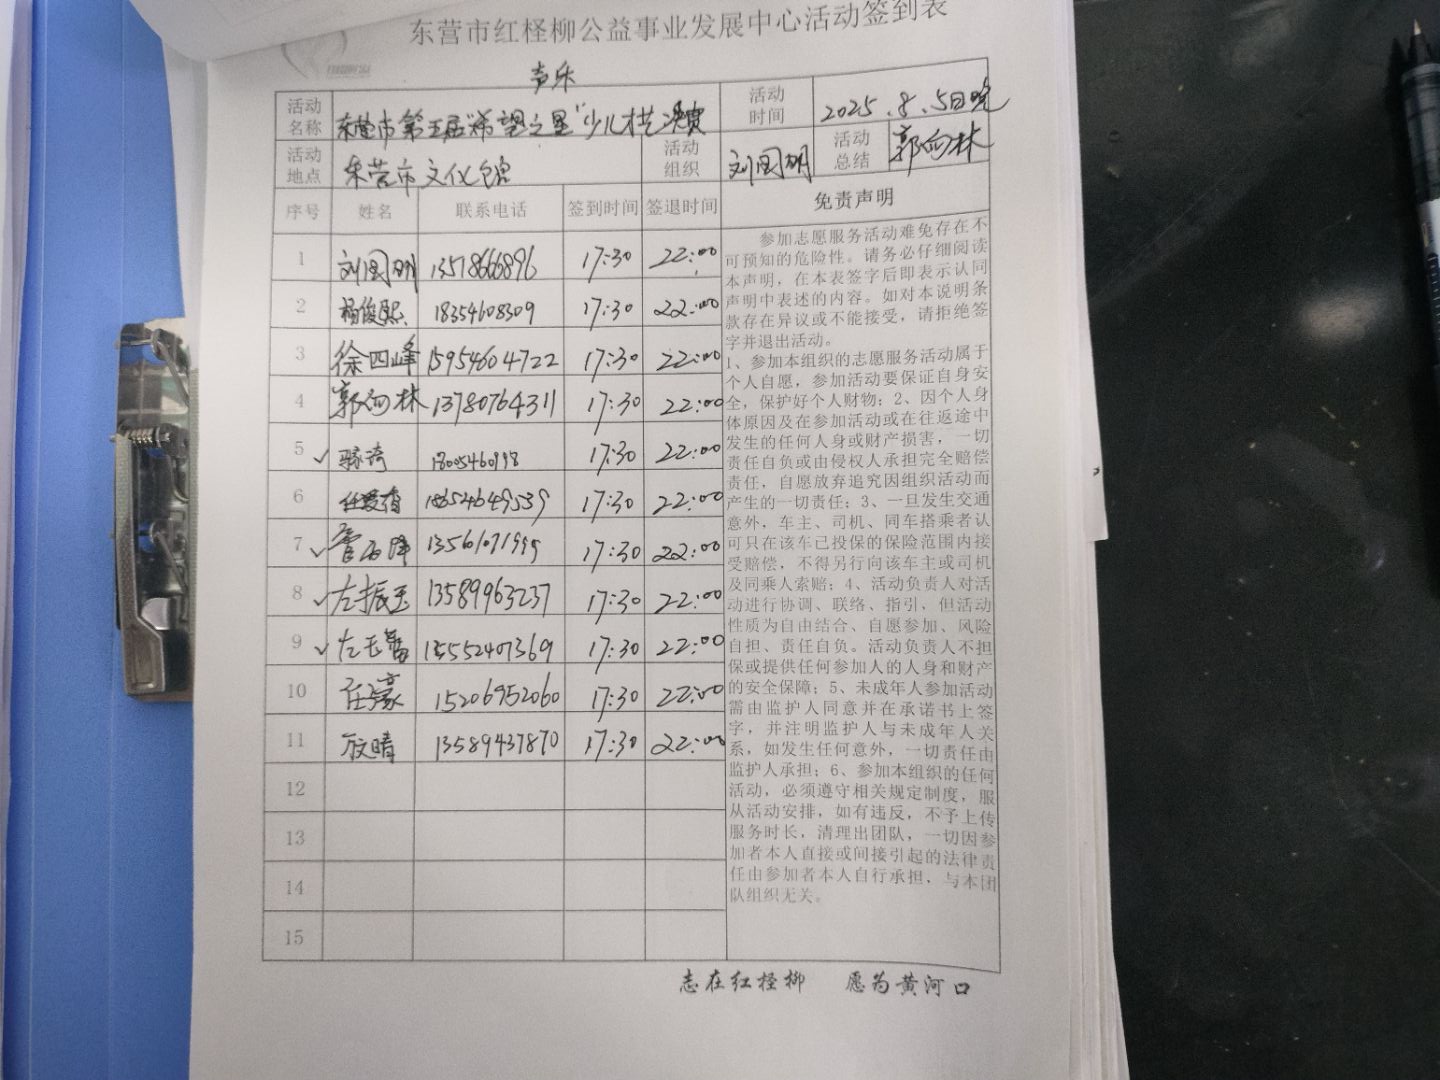 东营市红柽柳公益事业发展中心活动签到表
声乐
活动名称 东营市第五届“希望之星”少儿才艺决赛 活动时间 2025.8.5日晚
活动地点 东营市文化馆 活动组织 刘国明 活动总结 郭向林
序号 姓名 联系电话 签到时间 签退时间 免责声明
1 刘国明 13518666896 17:30 22:00
2 杨俊熙 18354608309 17:30 22:00
3 徐四峰 15954604722 17:30 22:00
4 郭向林 13780764311 17:30 22:00
5 ✓ 17:30 22:00
6 186524649539 17:30 22:00
7 ✓ 17:30 22:00
8 ✓ 左振玉 13589963237 17:30 22:00
9 ✓ 13552407369 17:30 22:00
10 任豪 15206952060 17:30 22:00
11 13589437870 17:30 22:00
12
13
14
15
参加志愿服务活动难免存在不
可预知的危险性。请务必仔细阅读
本声明，在本表签字后即表示认同
声明中表述的内容。如对本说明条
款存在异议或不能接受，请拒绝签
字并退出活动。
1、参加本组织的志愿服务活动属于
个人自愿，参加活动要保证自身安
全，保护好个人财物；2、因个人身
体原因及在参加活动或在往返途中
发生的任何人身或财产损害，一切
责任自负或由侵权人承担完全赔偿
责任，自愿放弃追究因组织活动而
产生的一切责任；3、一旦发生交通
意外，车主、司机、同车搭乘者认
可只在该车已投保的保险范围内接
受赔偿，不得另行向该车主或司机
及同乘人索赔；4、活动负责人对活
动进行协调、联络、指引，但活动
性质为自由结合、自愿参加、风险
自担、责任自负。活动负责人不担
保或提供任何参加人的人身和财产
的安全保障；5、未成年人参加活动
需由监护人同意并在承诺书上签
字，并注明监护人与未成年人关
系，如发生任何意外，一切责任由
监护人承担；6、参加本组织的任何
活动，必须遵守相关规定制度，服
从活动安排，如有违反，不予上传
服务时长，清理出团队，一切因参
加者本人直接或间接引起的法律责
任由参加者本人自行承担，与本团
队组织无关。
志在红柽柳 愿为黄河口